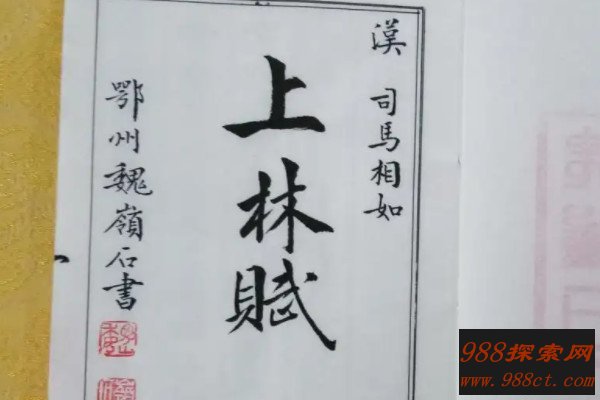 漢 司馬相如
上林賦
鄂州魏嶺石書
988探索网
www.988ct.com